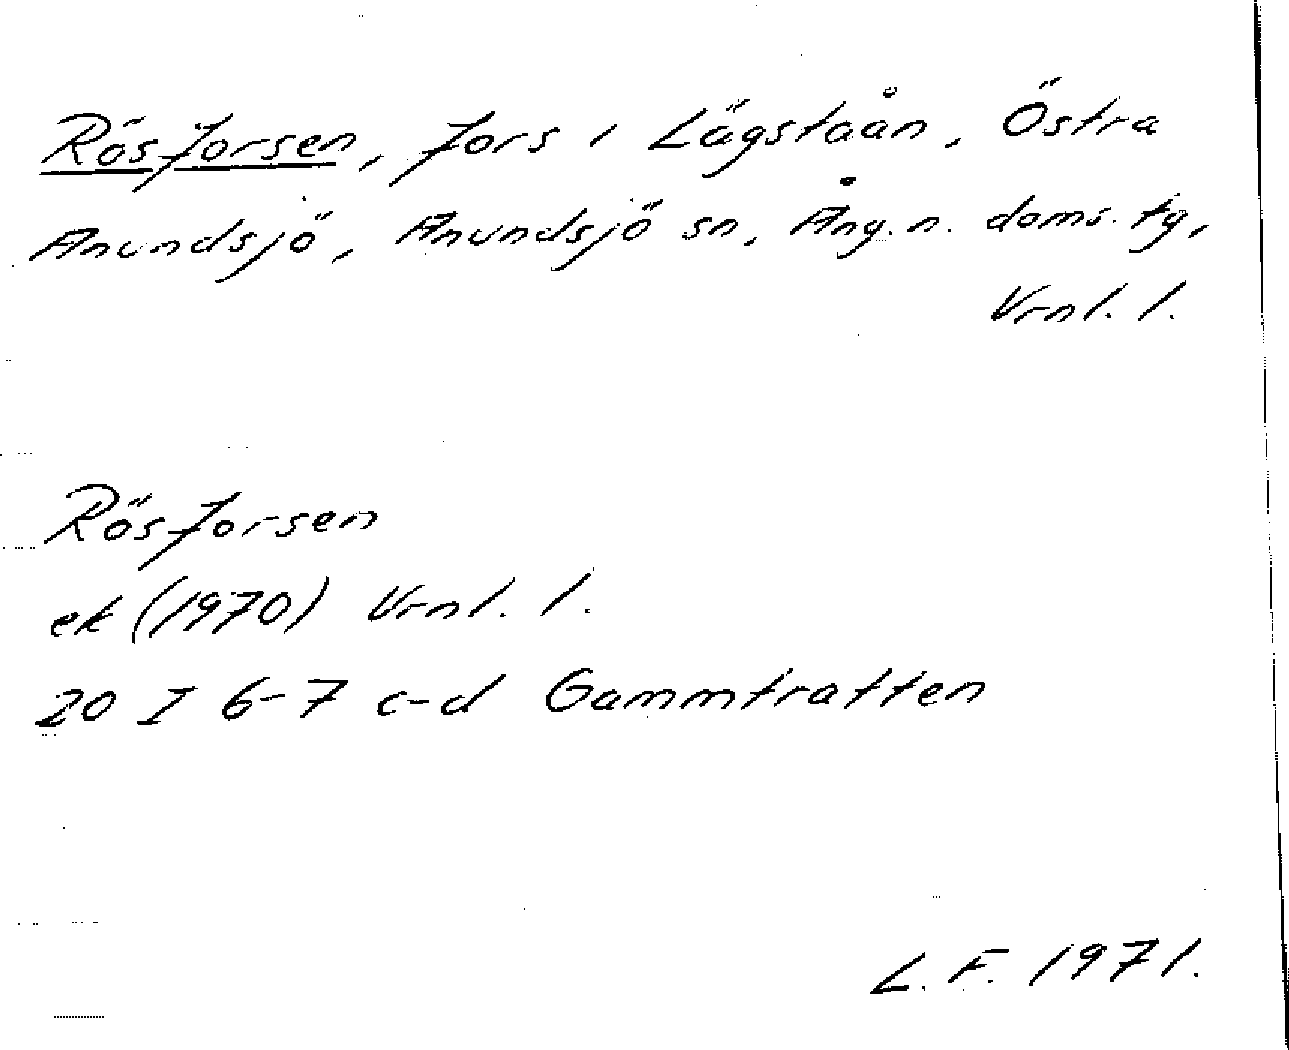 Rösforsen, fors i Lägstaån, Östra
Anundsjö, Anundsjö sn, Ång. n. doms. tg,
Vrnl. l.
Rösforsen
ek (1970) Vrnl. l.
20 I 6-7 c-d Gammtratten
L. F. 1971.